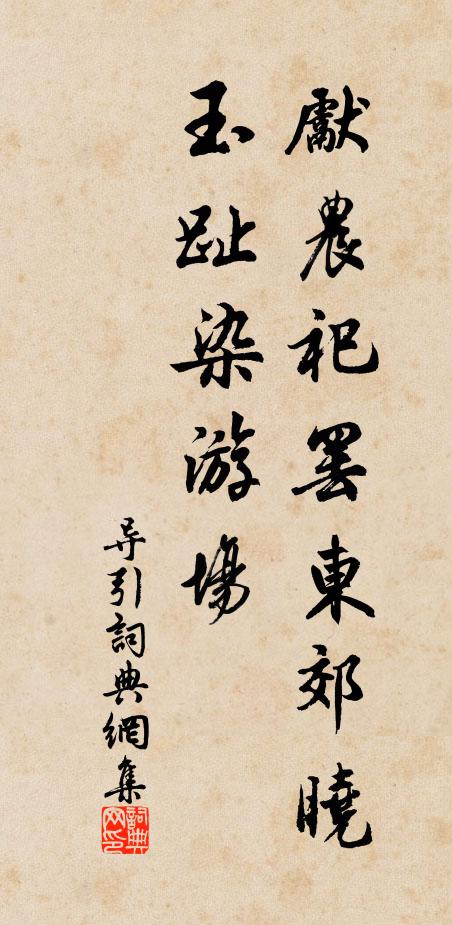 獻農祀罷東郊曉
玉趾染游場
导引詞典網集
詞典网印